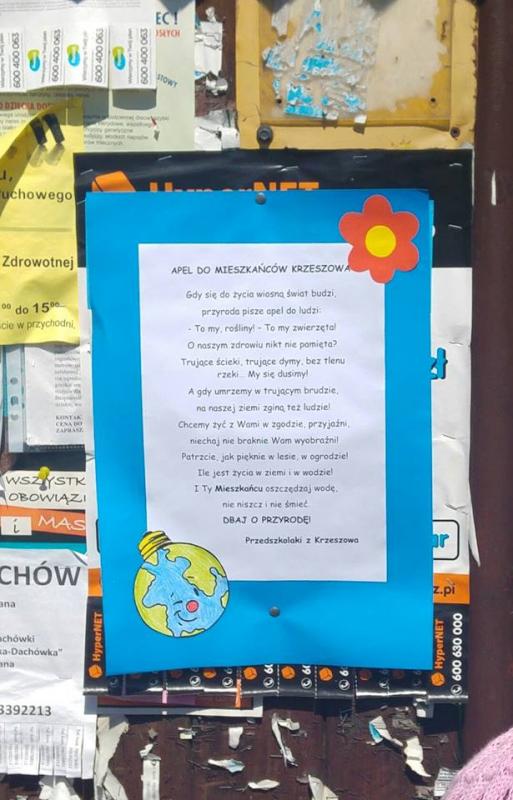 600 400 063
600 400 063
600 400 063
EC!
OSŁYCH
O DZIECKA
STOWY
u,
uchowego
Zdrowotnej
00 do 15 00
cie w przychodni,
HyperNET
APEL DO MIESZKAŃCÓW KRZESZOWA
Gdy się do życia wiosną świat budzi,
przyroda pisze apel do ludzi:
- To my, rośliny! - To my zwierzęta!
O naszym zdrowiu nikt nie pamięta?
Trujące ścieki, trujące dymy, bez tlenu
rzeki... My się dusimy!
A gdy umrzemy w trującym brudzie,
na naszej ziemi zginą też ludzie!
Chcemy żyć z Wami w zgodzie, przyjaźni,
niechaj nie braknie Wam wyobraźni!
Patrzcie, jak pięknie w lesie, w ogrodzie!
Ile jest życia w ziemi i w wodzie!
I Ty Mieszkańcu oszczędzaj wodę,
nie niszcz i nie śmieć.
DBAJ O PRZYRODĘ!
Przedszkolaki z Krzeszowa
KONTAK
CENA DO
ZAPRASZ
WSZYSTK
OBOWIĄZI
i MAS
CHÓW
ana
achówki
ka-Dachówka"
ana
3392213
zł
ar
z.pl
HyperNET
HyperNET
600 630 000